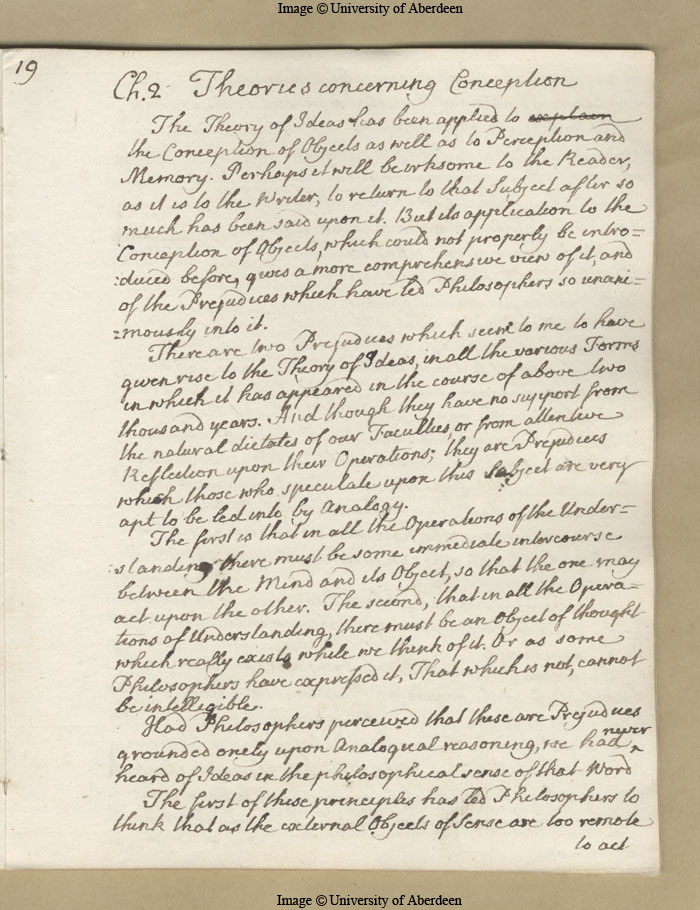 Image © University of Aberdeen
19
Ch. 2 Theories concerning Conception
The Theory of Ideas has been applied to explain
the Conception of Objects as well as to Perception and
Memory. Perhaps it will be irksome to the Reader,
as it is to the Writer, to return to that Subject after so
much has been said upon it. But its application to the
Conception of Objects, which could not properly be intro=
:duced before, gives a more comprehensive view of it, and
of the Prejudices which have led Philosophers so unani=
=mously into it.
There are two Prejudices which seem to me to have
given rise to the Theory of Ideas, in all the various Forms
in which it has appeared in the course of above two
thousand years. And though they have no support from
the natural dictates of our Faculties or from attentive
Reflection upon their Operations; they are Prejudices
which those who speculate upon this Subject are very
apt to be led into by Analogy.
The first is that in all the Operations of the Under=
standing there must be some immediate intercourse
between the Mind and its Object, so that the one may
act upon the other. The second, that in all the Opera=
tions of Understanding, there must be an Object of thought
which really exists while we think of it. Or as some
Philosophers have expressed it, That which is not, cannot
be intelligible.
Had Philosophers perceived that these are Prejudices
grounded onely upon Analogical reasoning, we had never
heard of Ideas in the philosophical sense of that Word
The first of these principles has led Philosophers to
think that as the external Objects of Sense are too remote
to act
Image © University of Aberdeen